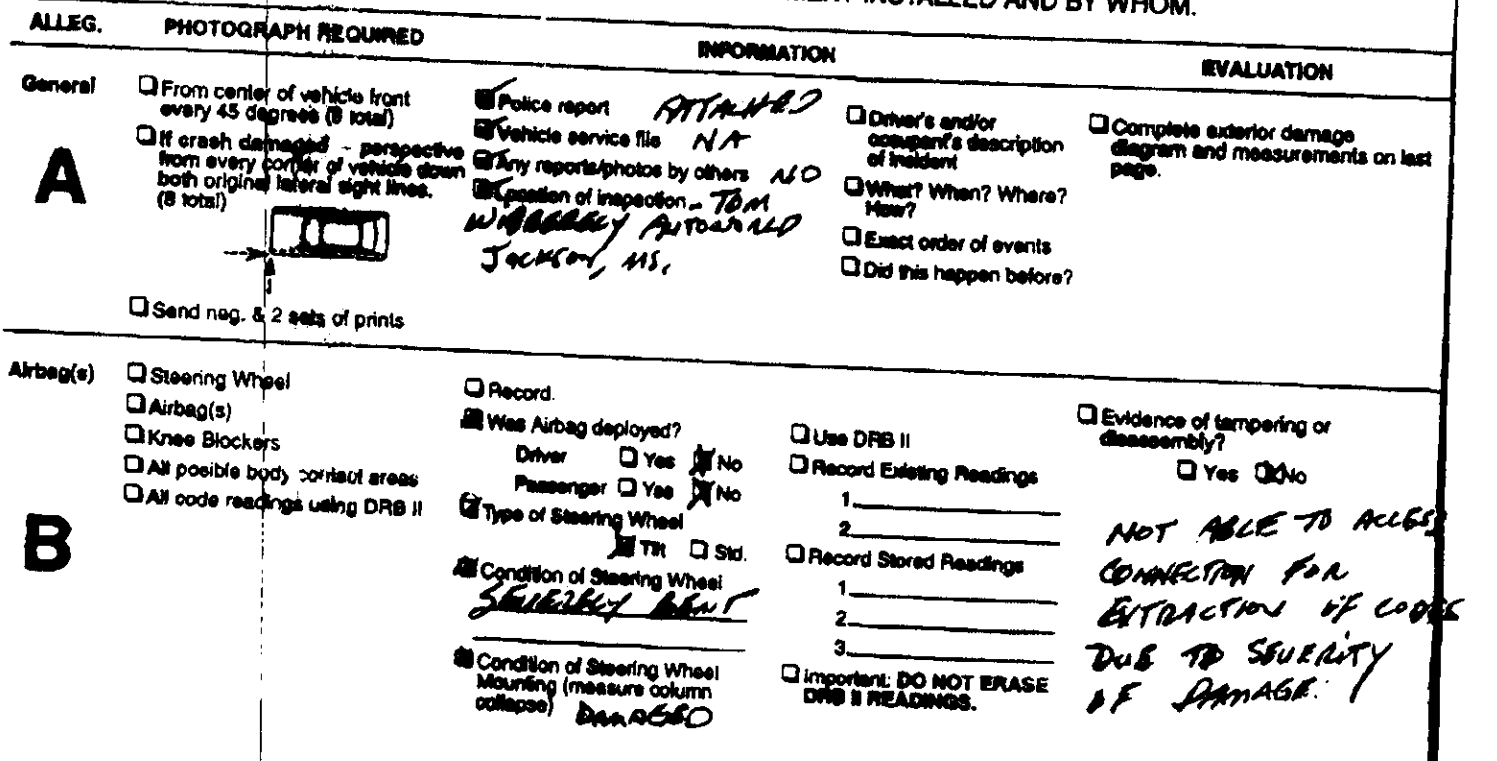 INSTALLED AND BY WHOM.
ALLEG.
PHOTOGRAPH REQUIRED
INFORMATION
EVALUATION
General
A
From center of vehicle front
every 45 degrees (8 total)
If crash damaged - perspective
from every corner of vehicle down
both original lateral sight lines.
(8 total)
Send neg. & 2 sets of prints
Police report ATTACHED
Vehicle service file NA
Any reports/photos by others NO
Location of inspection - TOM
AUTOWORLD
Jackson, MS.
Driver's and/or
occupant's description
of incident
What? When? Where?
How?
Exact order of events
Did this happen before?
Complete exterior damage
diagram and measurements on last
page.
Airbag(s)
B
Steering Wheel
Airbag(s)
Knee Blockers
All posible body contact areas
All code readings using DRB II
Record.
Was Airbag deployed?
Driver Yes No
Passenger Yes No
Type of Steering Wheel
Tilt Std.
Condition of Steering Wheel
SEVERELY BENT
Condition of Steering Wheel
Mounting (measure column
collapse) DAMAGED
Use DRB II
Record Existing Readings
1.
2.
Record Stored Readings
1.
2.
3.
Important: DO NOT ERASE
DRB II READINGS.
Evidence of tampering or
disassembly?
Yes No
NOT ABLE TO ACCESS
CONNECTION FOR
EXTRACTION OF CODES
DUE TO SEVERITY
OF DAMAGE.